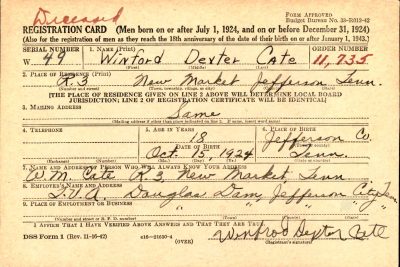 Deceased
FORM APPROVED
Budget Bureau No. 33-R012-42
REGISTRATION CARD (Men born on or after July 1, 1924, and on or before December 31, 1924)
(Also for the registration of men as they reach the 18th anniversary of the date of their birth on or after January 1, 1943.)
SERIAL NUMBER
1. NAME (Print)
ORDER NUMBER
W 49
Winford Dexter Cate
11,735
(First) (Middle) (Last)
2. PLACE OF RESIDENCE (Print)
R3 New Market Jefferson Tenn.
(Number and street) (Town, township, village, or city) (County) (State)
[THE PLACE OF RESIDENCE GIVEN ON LINE 2 ABOVE WILL DETERMINE LOCAL BOARD
JURISDICTION; LINE 2 OF REGISTRATION CERTIFICATE WILL BE IDENTICAL]
3. MAILING ADDRESS
Same
(Mailing address if other than place indicated on line 2. If same, insert word same)
4. TELEPHONE
5. AGE IN YEARS
6. PLACE OF BIRTH
18
Jefferson Co.
DATE OF BIRTH
Oct. 15, 1924
Tenn.
(Exchange) (Number) (Mo.) (Day) (Yr.) (State or country)
7. NAME AND ADDRESS OF PERSON WHO WILL ALWAYS KNOW YOUR ADDRESS
W.M. Cate R3 New Market Tenn
8. EMPLOYER'S NAME AND ADDRESS
T.V.A. Douglas Dam, Jefferson City Tenn
9. PLACE OF EMPLOYMENT OR BUSINESS
(Number and street or R. F. D. number) (Town) (County) (State)
I AFFIRM THAT I HAVE VERIFIED ABOVE ANSWERS AND THAT THEY ARE TRUE.
DSS Form 1 (Rev. 11-16-42)
(OVER)
Winfrod Dexter Cate
(Registrant's signature)